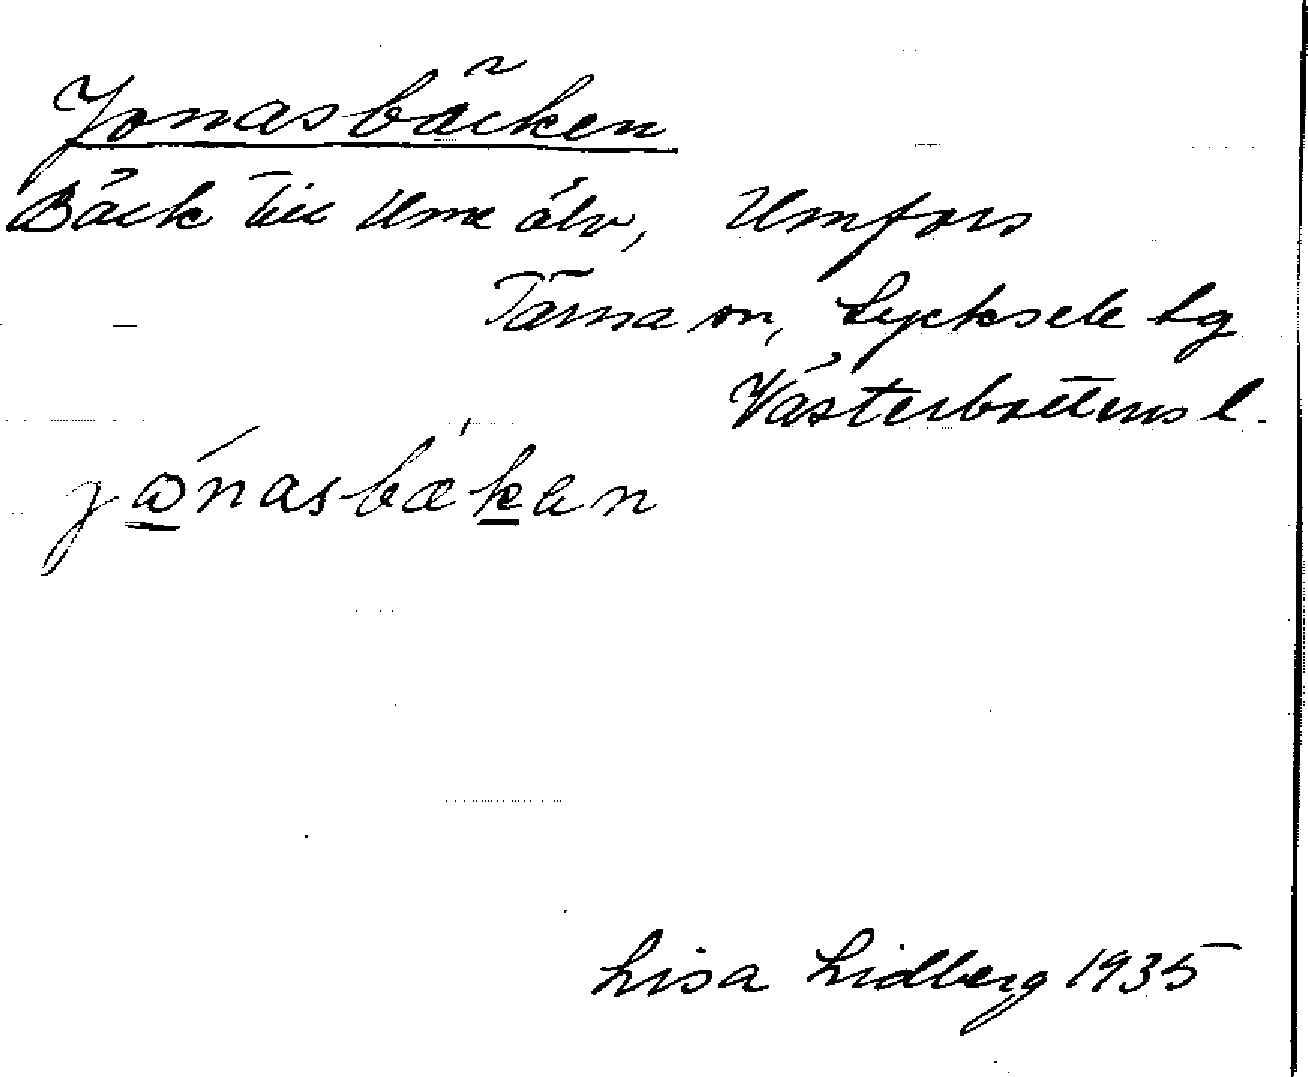 Jonasbäcken
Bäck till Ume älv, Umfors
Tärna sn, Lycksele lg
Västerbottens l.
Lisa Lidberg 1935